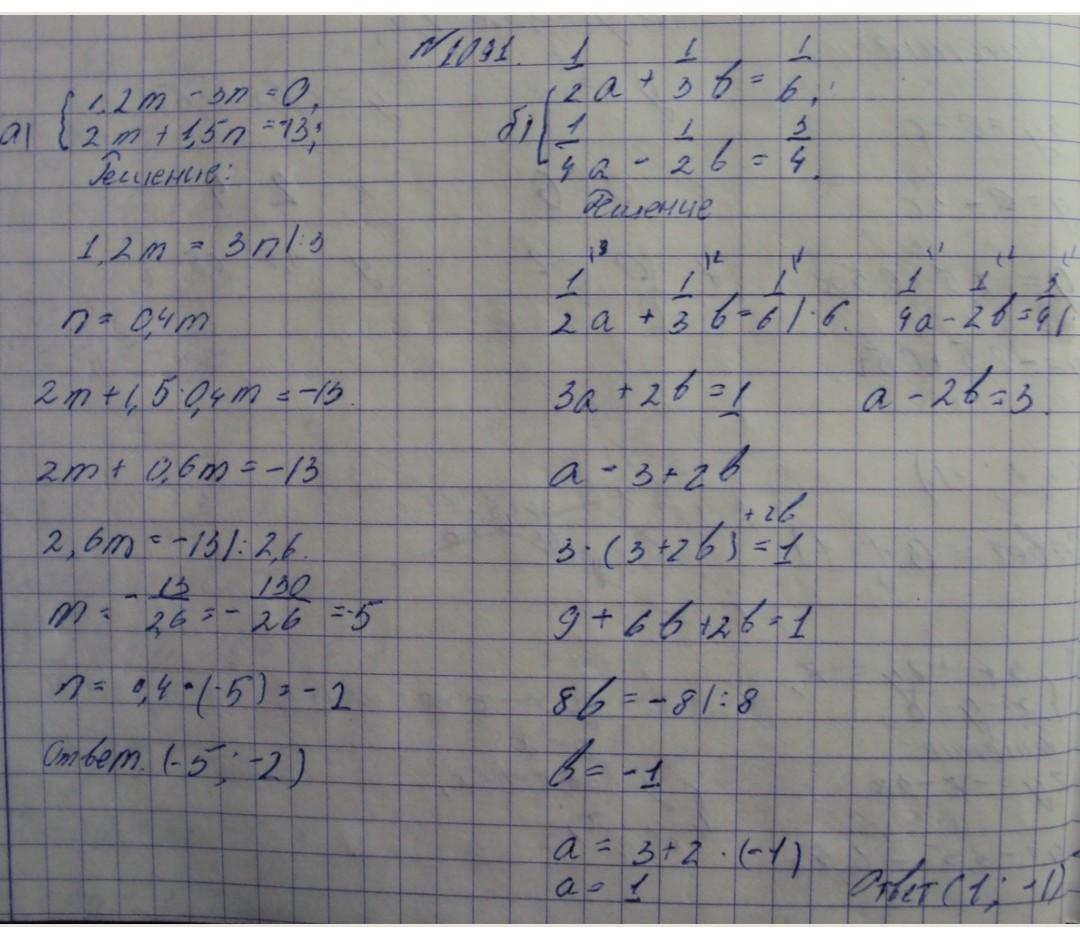 №1091.
а) { 1,2m - 3n = 0,
2m + 1,5n = -13;
Решение:
1,2m = 3n |:3
n = 0,4m
2m + 1,5·0,4m = -13.
2m + 0,6m = -13
2,6m = -13 |: 2,6.
m = - 13/2,6 = - 130/26 = -5
n = 0,4 · (-5) = -2
Ответ. (-5; -2)
б) { 1/2 a + 1/3 b = 1/6,
1/4 a - 1/2 b = 3/4.
Решение
1/2 a + 1/3 b = 1/6 | · 6. 1/4 a - 1/2 b = 3/4 |
3a + 2b = 1 a - 2b = 3.
a = 3 + 2b
3 · (3 + 2b) + 2b = 1
9 + 6b + 2b = 1
8b = -8 |: 8
b = -1
a = 3 + 2 · (-1)
a = 1
Ответ (1; -1)